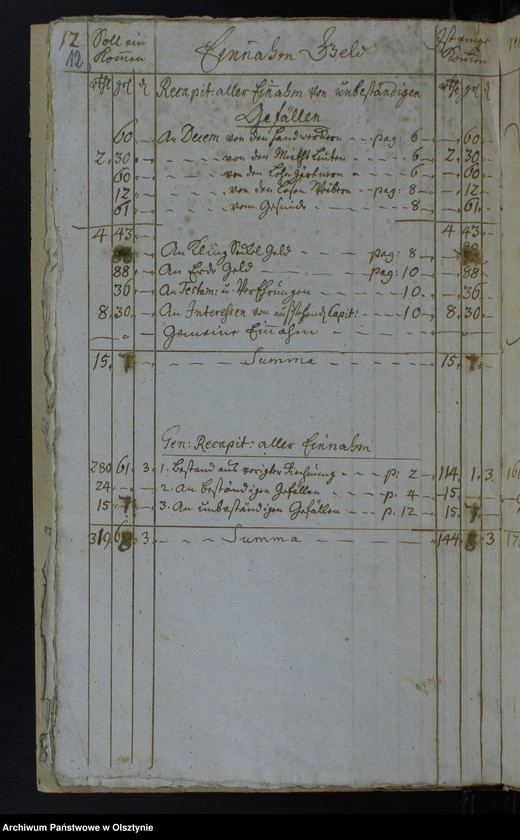 12 Soll ein Einnahm Geld Ist einge
12 kom̄en kom̄en
rthl gr ₰ Recapit: aller Einahm von unbeständigen rthl gr ₰
Gefällen
60 An Decem von den Handwerckern - - pag: 6 60
2. 30 - - von den Mieths Leuten - - 6 2. 30
60 - - von den Loßgärtnern - - 6 60
12 - - von den Losen Weibern - pag: 8 12
61 - - vom Gesinde - - 8 61
4 43 4 43
An Kling Seckel Geld - - pag: 8
88 An Erde Geld - - pag: 10 88
36 An Testam: u. Verehrungen - 10 36
8. 30 An Interessen von Capit: - - 10 8. 30
Gemeine Einnahm
15. Summa 15.
Gen: Recapit: aller Einnahm
280 61 3 1. Bestand aus voriger Rechnung - - - p: 2 114 1. 3
24 2. An beständigen Gefällen - - p. 4 15
15 3. An unbeständigen Gefällen - - p. 12 15
319 3 Summa 144 3
Archiwum Państwowe w Olsztynie